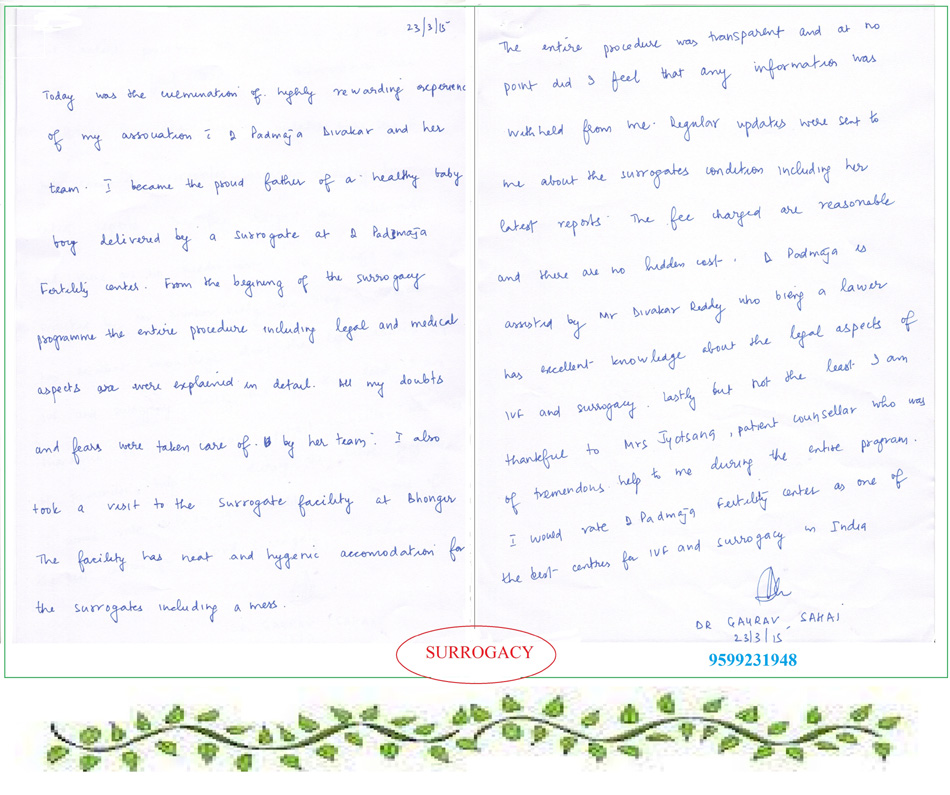 23/3/15
Today was the culmination of highly rewarding experience
of my association c̄ D Padmaja Divakar and her
team. I became the proud father of a healthy baby
boy delivered by a surrogate at D Padmaja
Fertility center. From the begining of the surrogacy
programme the entire procedure including legal and medical
aspects were explained in detail. All my doubts
and fears were taken care of by her team. I also
took a visit to the surrogate facility at Bhongir
The facility has neat and hygenic accomodation for
the surrogates including a mess.
The entire procedure was transparent and at no
point did I feel that any information was
withheld from me. Regular updates were sent to
me about the surrogates condition including her
latest reports. The fee charged are reasonable
and there are no hidden cost. D Padmaja is
assisted by Mr Divakar Reddy who being a lawer
has excellent knowledge about the legal aspects of
IVF and surrogacy. Lastly but not the least I am
thankful to Mrs Jyotsana, patient counsellar who was
of tremendous help to me during the entire program.
I would rate D Padmaja Fertility center as one of
the best centres for IVF and surrogacy in India
DR GAURAV SAHAI
23/3/15
SURROGACY
9599231948